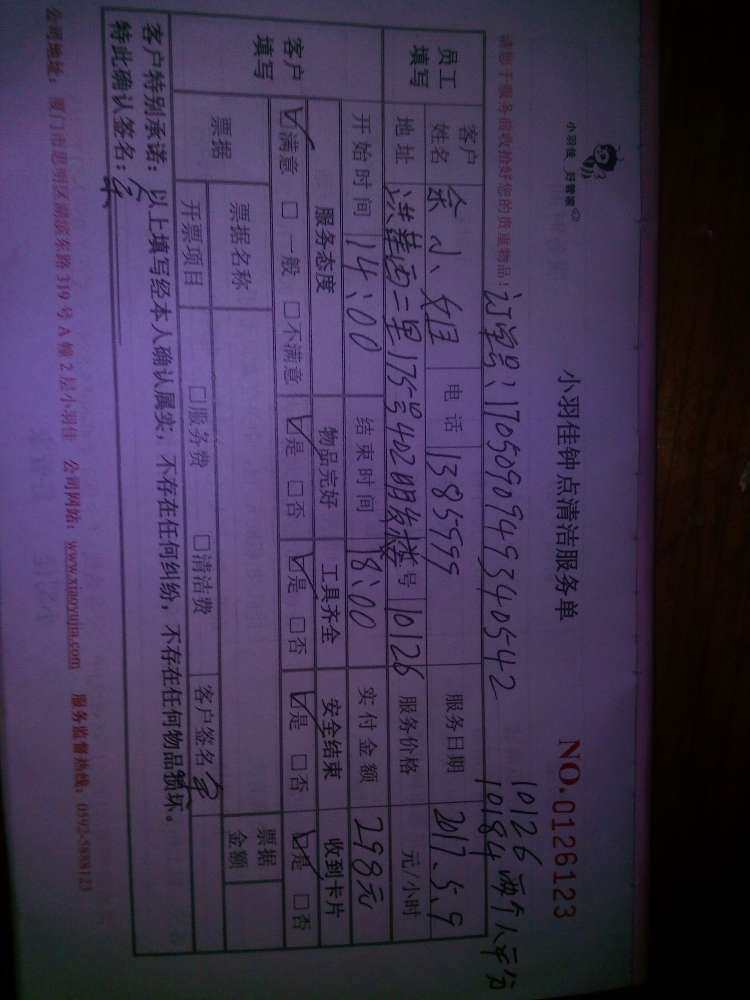 小羽佳 好管家
小羽佳钟点清洁服务单
NO.0126123
10126
10184 两个人平分
请您于服务前收拾好您的贵重物品！
订单号：1705090949340542
员工填写
客户姓名 余小姐 电话 1385999 服务日期 2017.5.9
地址 莲西二里175号402明发楼 号 10126 服务价格 元/小时
开始时间 14:00 结束时间 18:00 实付金额 298元
客户填写
服务态度 物品完好 工具齐全 安全结束 收到卡片
☑满意 □一般 □不满意 ☑是 □否 ☑是 □否 ☑是 □否 ☑是 □否
票据 票据名称 票据金额
开票项目 □服务费 □清洁费 客户签名 余
客户特别承诺：以上填写经本人确认属实，不存在任何纠纷，不存在任何物品损坏。
特此确认签名：余
公司地址：厦门市思明区湖滨东路319号A幢2层小羽佳 公司网站：www.xiaoyujia.com 服务监督热线：0592-5888123